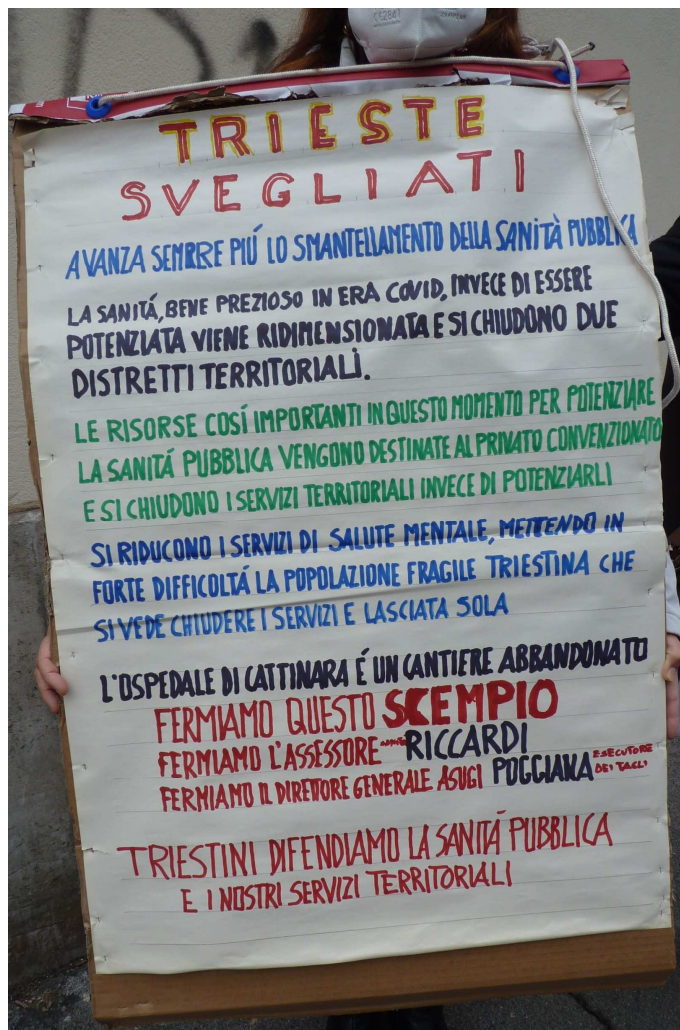 TRIESTE
SVEGLIATI
AVANZA SEMPRE PIÚ LO SMANTELLAMENTO DELLA SANITÀ PUBBLICA
LA SANITÁ, BENE PREZIOSO IN ERA COVID, INVECE DI ESSERE
POTENZIATA VIENE RIDIMENSIONATA E SI CHIUDONO DUE
DISTRETTI TERRITORIALI.
LE RISORSE COSÍ IMPORTANTI IN QUESTO MOMENTO PER POTENZIARE
LA SANITÁ PUBBLICA VENGONO DESTINATE AL PRIVATO CONVENZIONATO
E SI CHIUDONO I SERVIZI TERRITORIALI INVECE DI POTENZIARLI
SI RIDUCONO I SERVIZI DI SALUTE MENTALE, METTENDO IN
FORTE DIFFICOLTÁ LA POPOLAZIONE FRAGILE TRIESTINA CHE
SI VEDE CHIUDERE I SERVIZI E LASCIATA SOLA
L'OSPEDALE DI CATTINARA É UN CANTIERE ABBANDONATO
FERMIAMO QUESTO SCEMPIO
FERMIAMO L'ASSESSORE RICCARDI
FERMIAMO IL DIRETTORE GENERALE ASUGI POGGIANA ESECUTORE DEI TAGLI
TRIESTINI DIFENDIAMO LA SANITÁ PUBBLICA
E I NOSTRI SERVIZI TERRITORIALI